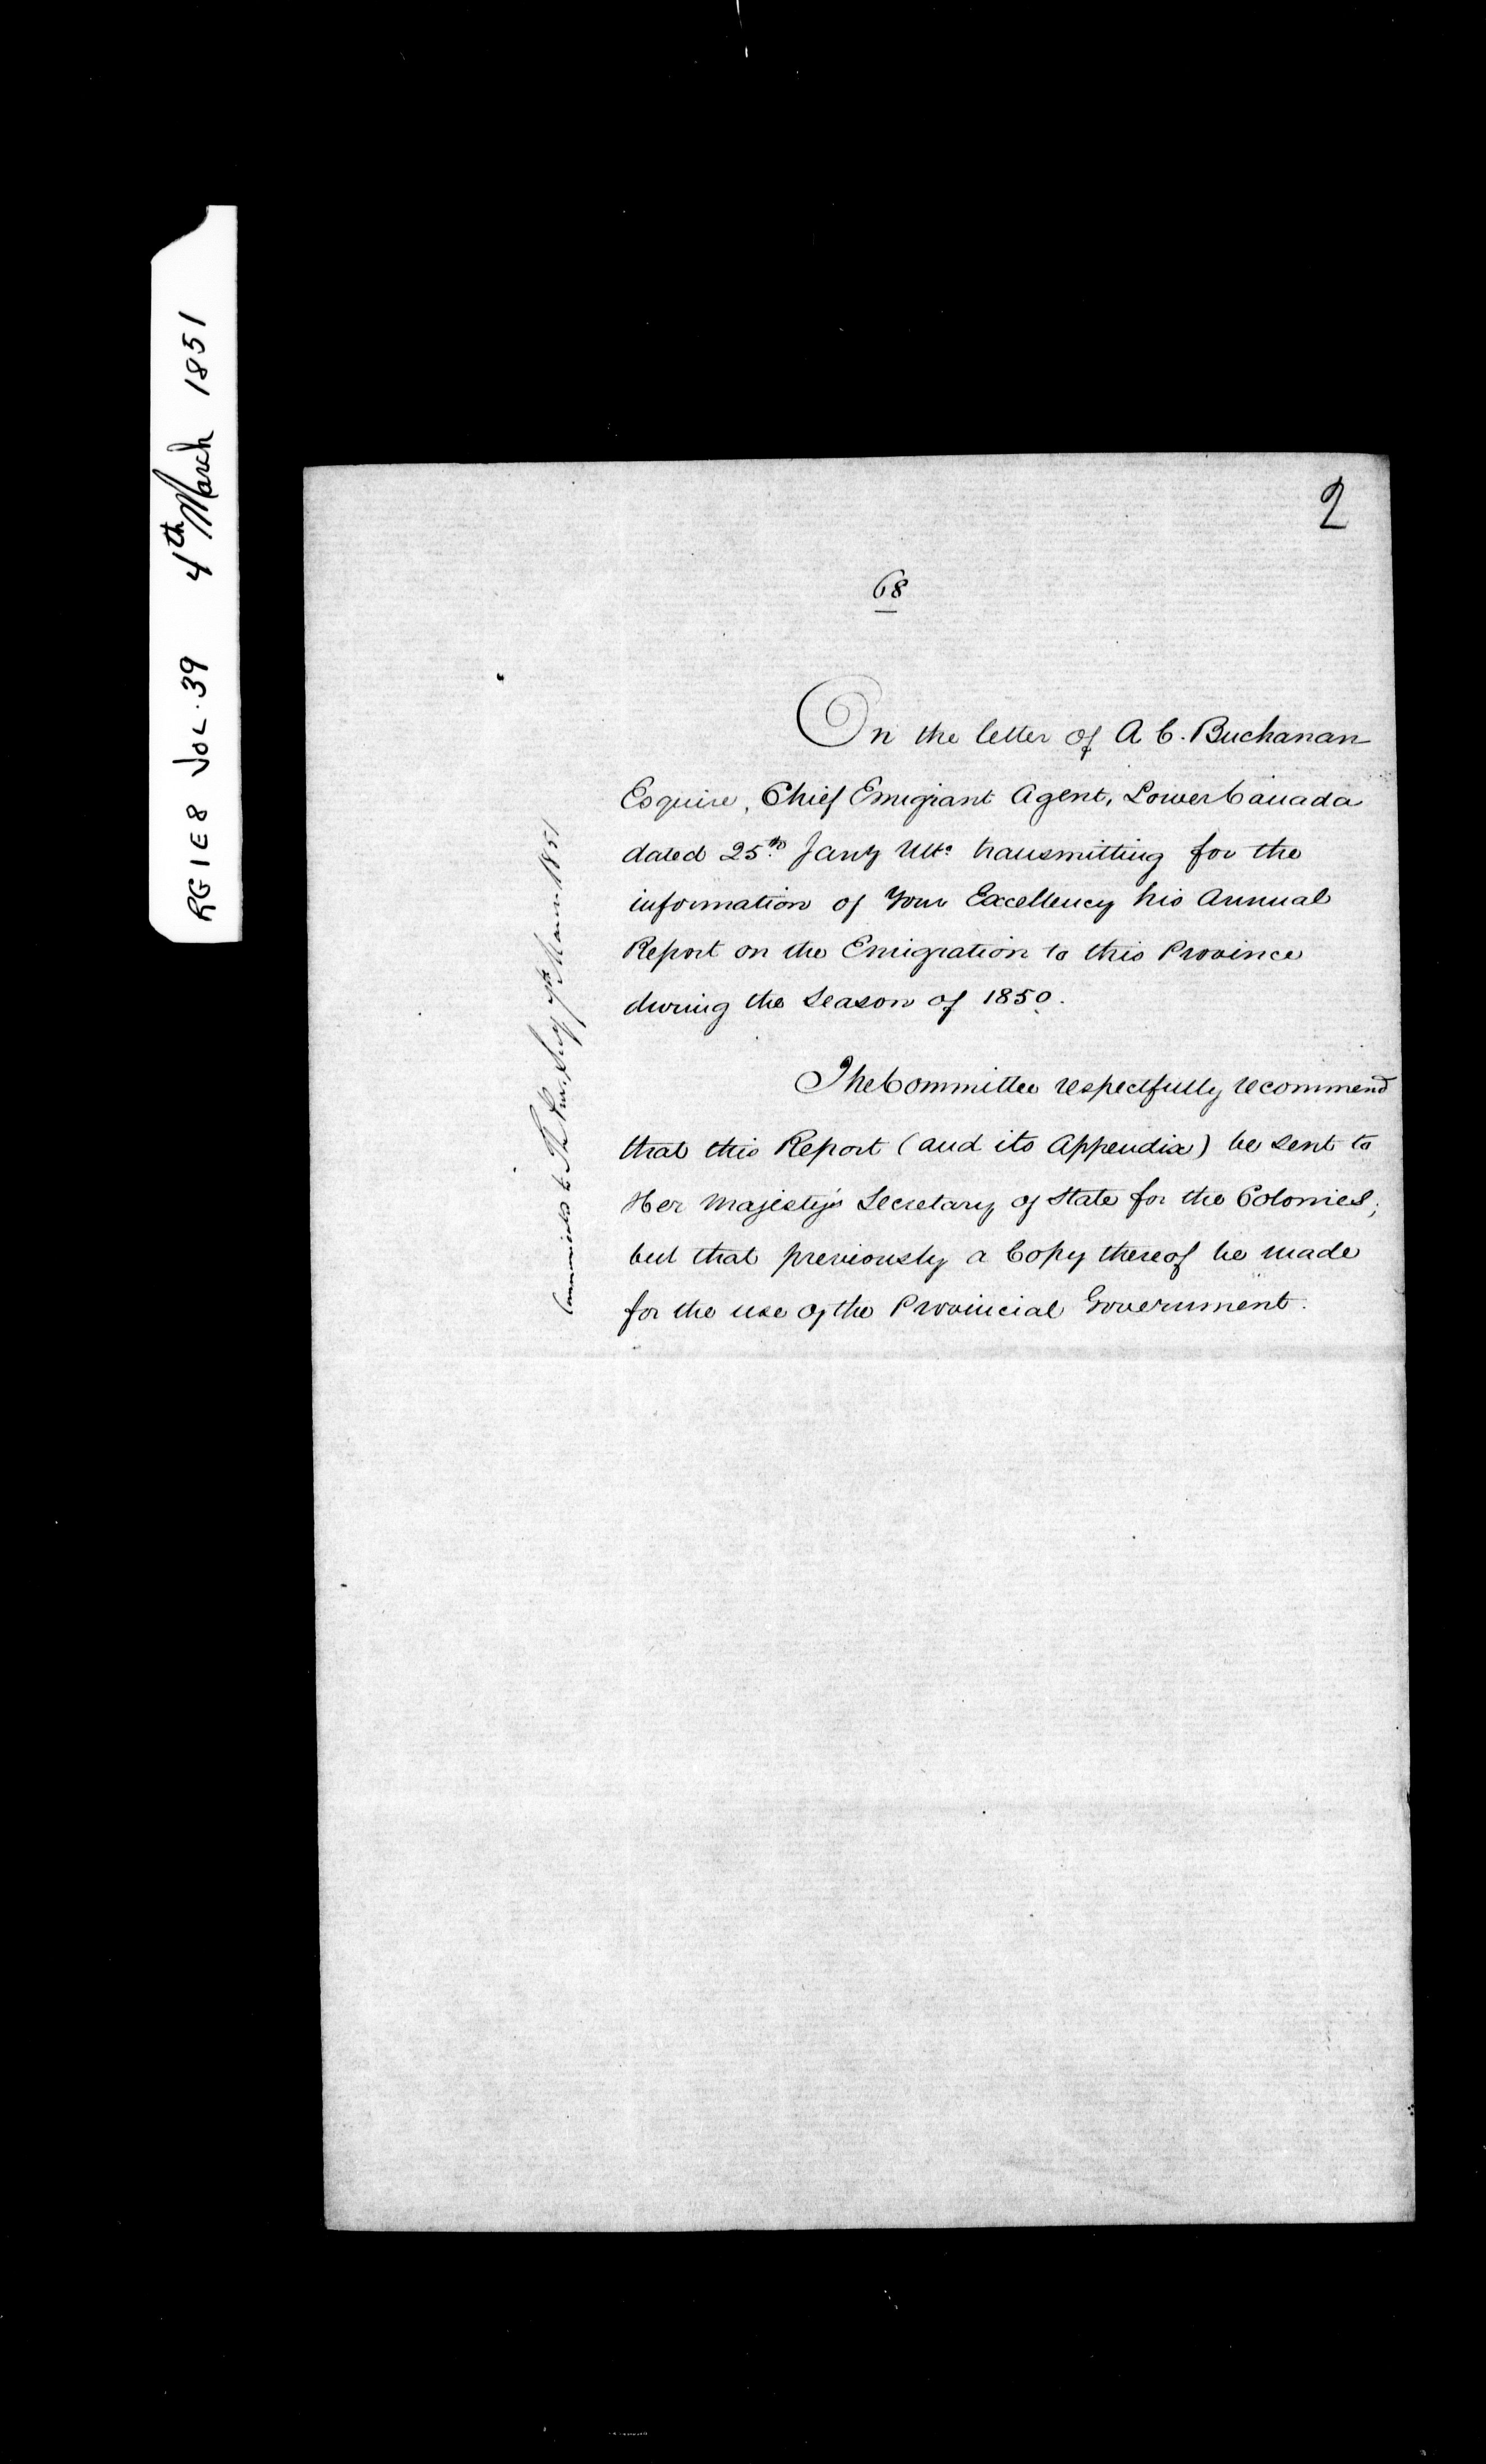 RG 1 E 8 VOL. 39 4th March 1851
2
68
On the letter of A C. Buchanan
Esquire, Chief Emigrant Agent, Lower Canada
dated 25th Jany Ulto transmitting for the
information of Your Excellency his Annual
Report on the Emigration to this Province
during the Season of 1850.
The Committee respectfully recommend
that this Report (and its Appendix) be sent to
Her Majesty's Secretary of State for the Colonies;
but that previously a Copy thereof be made
for the use of the Provincial Government.
to The Secy 7th March 1851